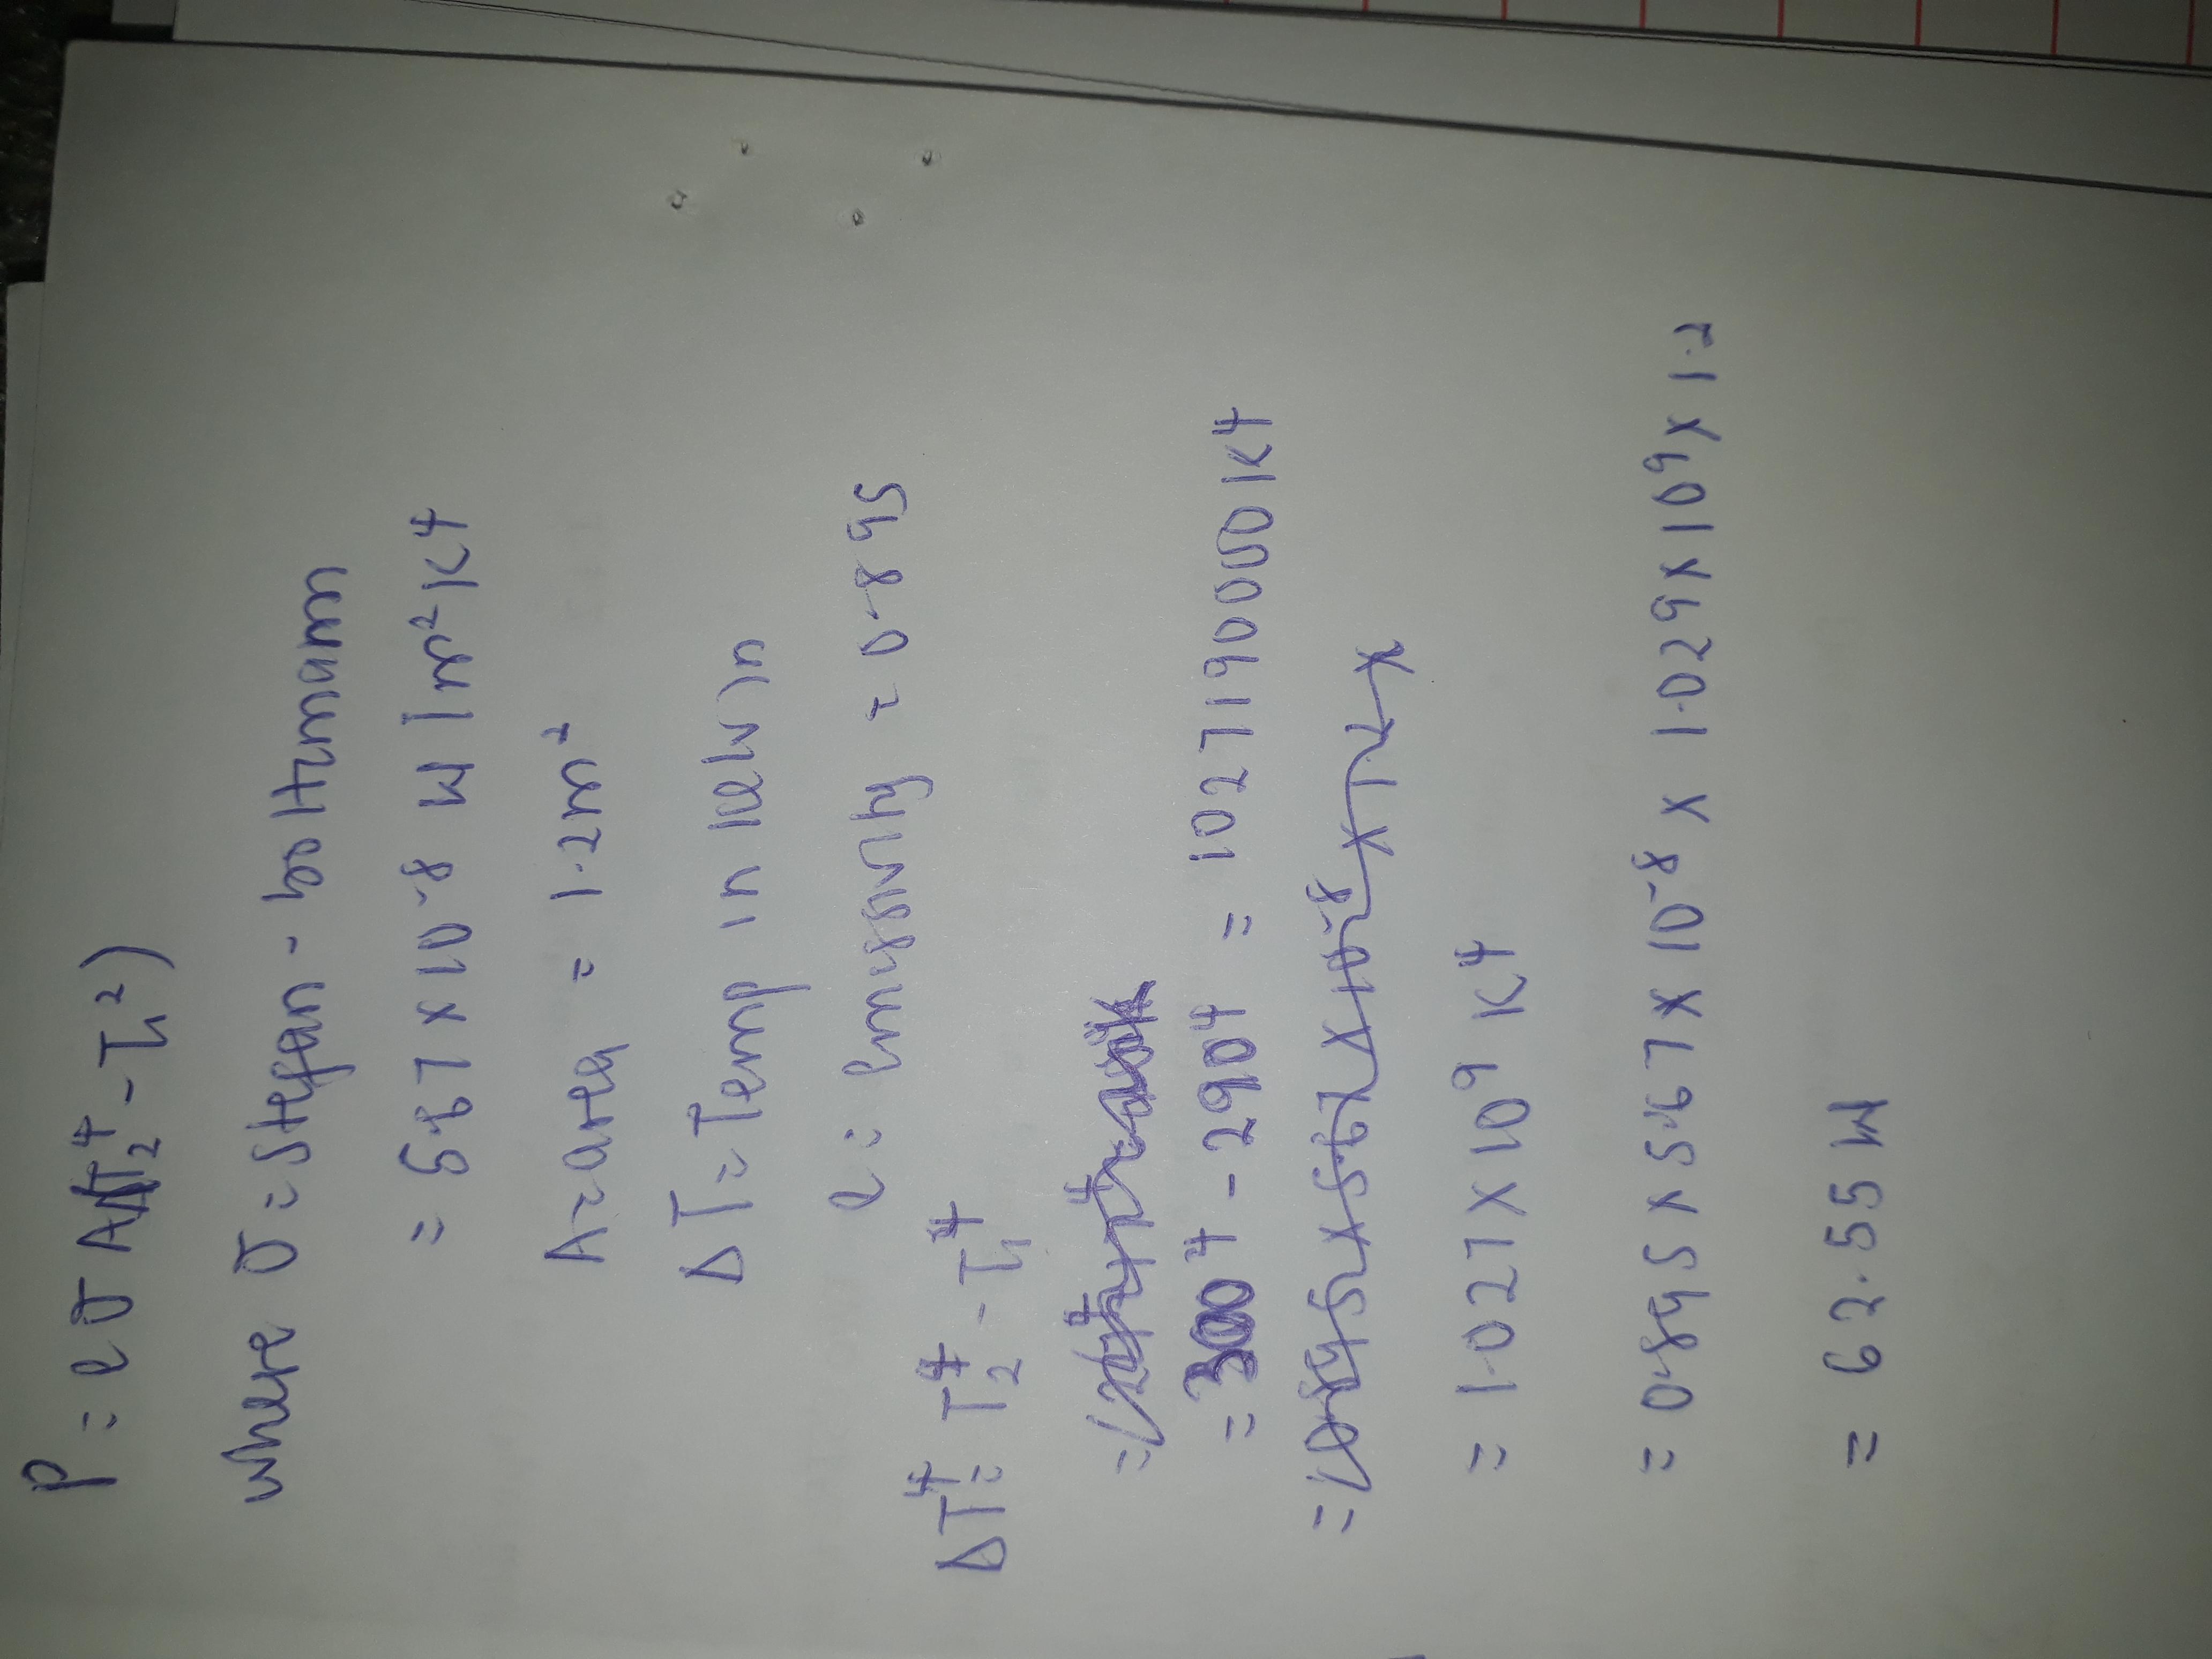 P = eσA(T₂⁴ - T₁²)
where σ = stefan - boltzmann
= 5.67 x 10⁻⁸ W | m² K⁴
A = area = 1.2m²
ΔT = Temp in kelvin
e = emissivity = 0.895
ΔT⁴ = T₂⁴ - T₁⁴
= 300⁴ - 290⁴ = 1027190000 K⁴
= 1.027 x 10⁹ K⁴
= 0.895 x 5.67 x 10⁻⁸ x 1.029 x 10⁹ x 1.2
= 62.55 W